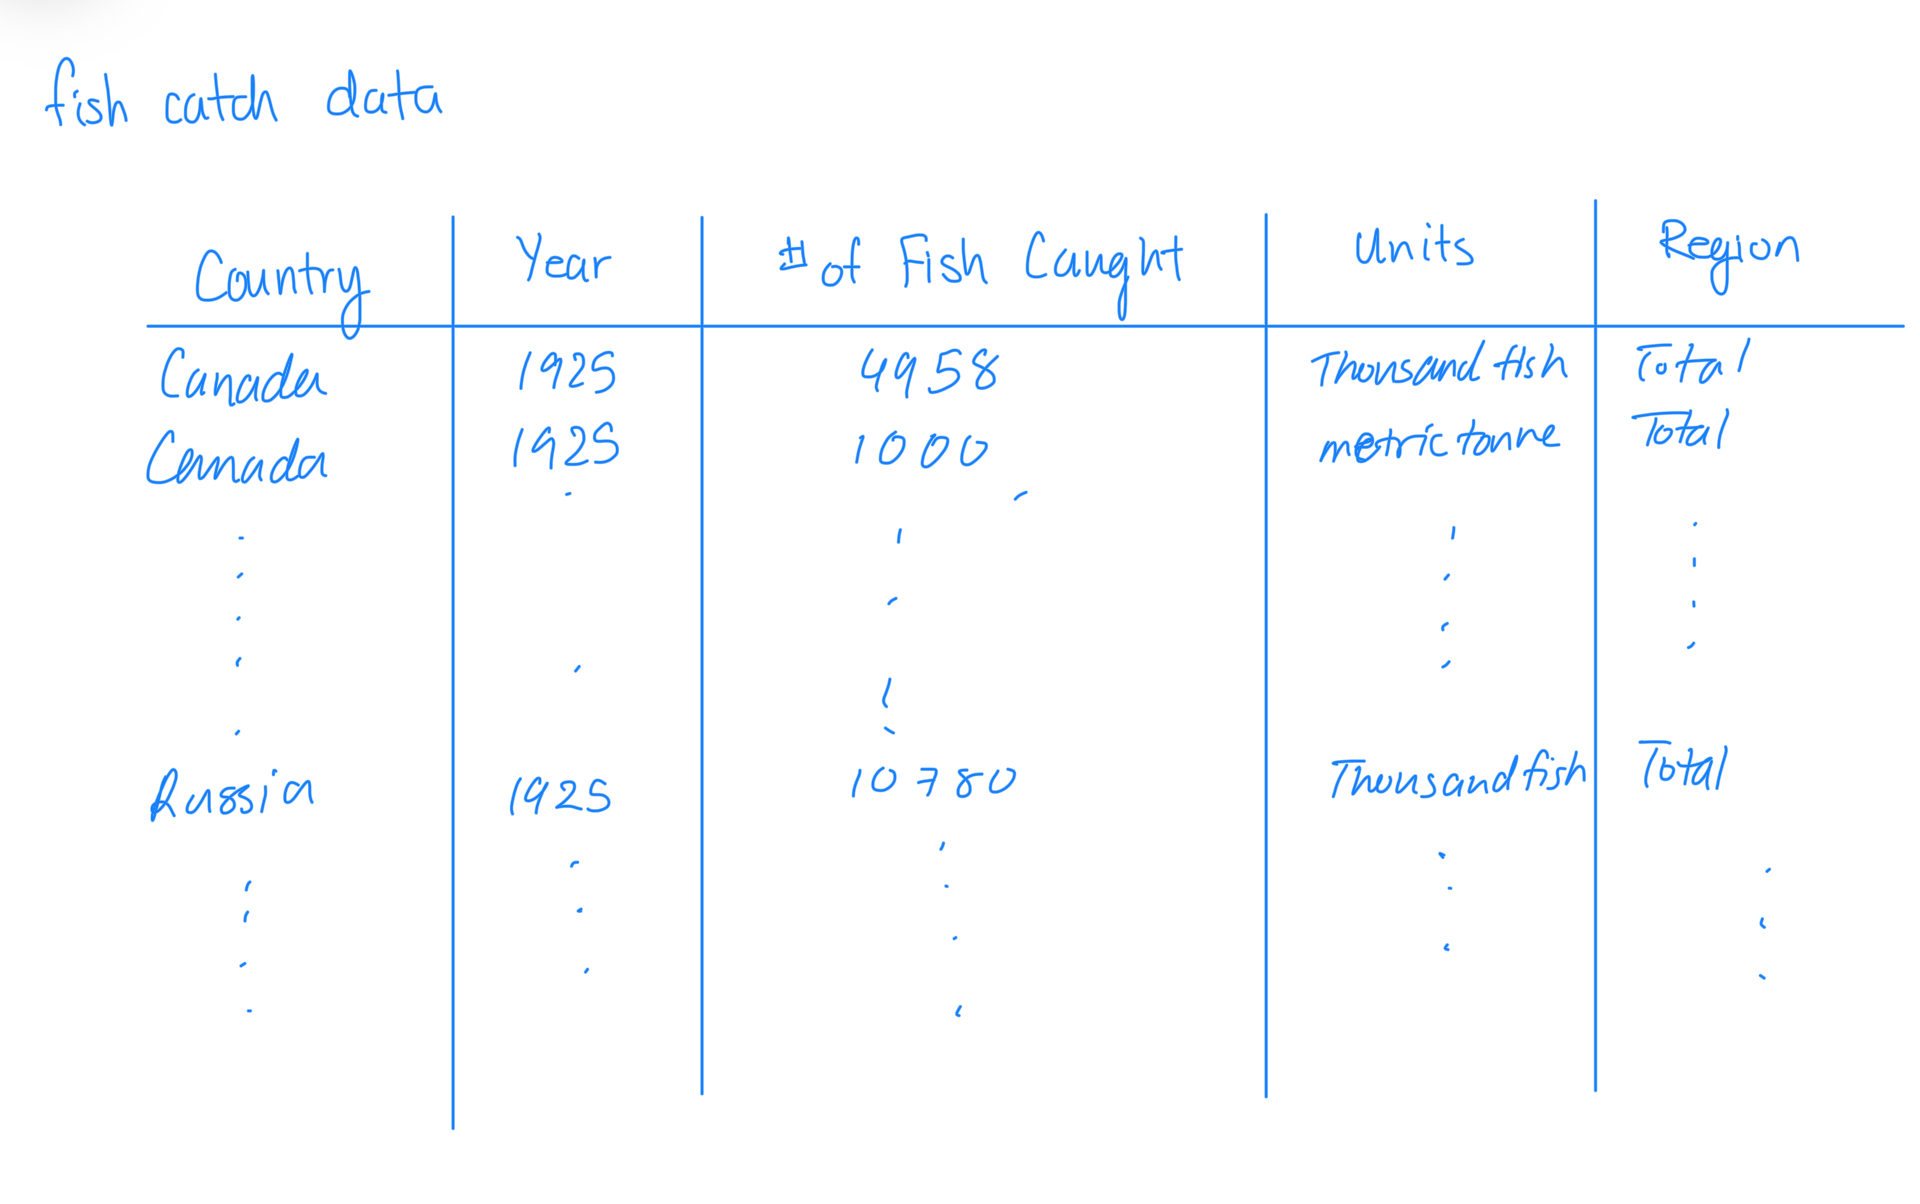 fish catch data
Country Year # of Fish Caught Units Region
Canada 1925 4958 Thousand fish Total
Canada 1925 1000 metric tonne Total
Russia 1925 10780 Thousand fish Total